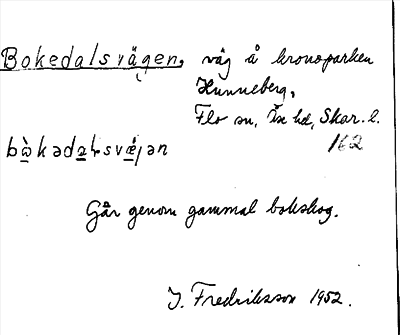 Bokedalsvägen, väg å kronoparken
Hunneberg,
Flo sn, Åse hd, Skar. l.
162
bòkədaLsvæ̀jən
Går genom gammal bokskog.
I. Fredriksson 1952.